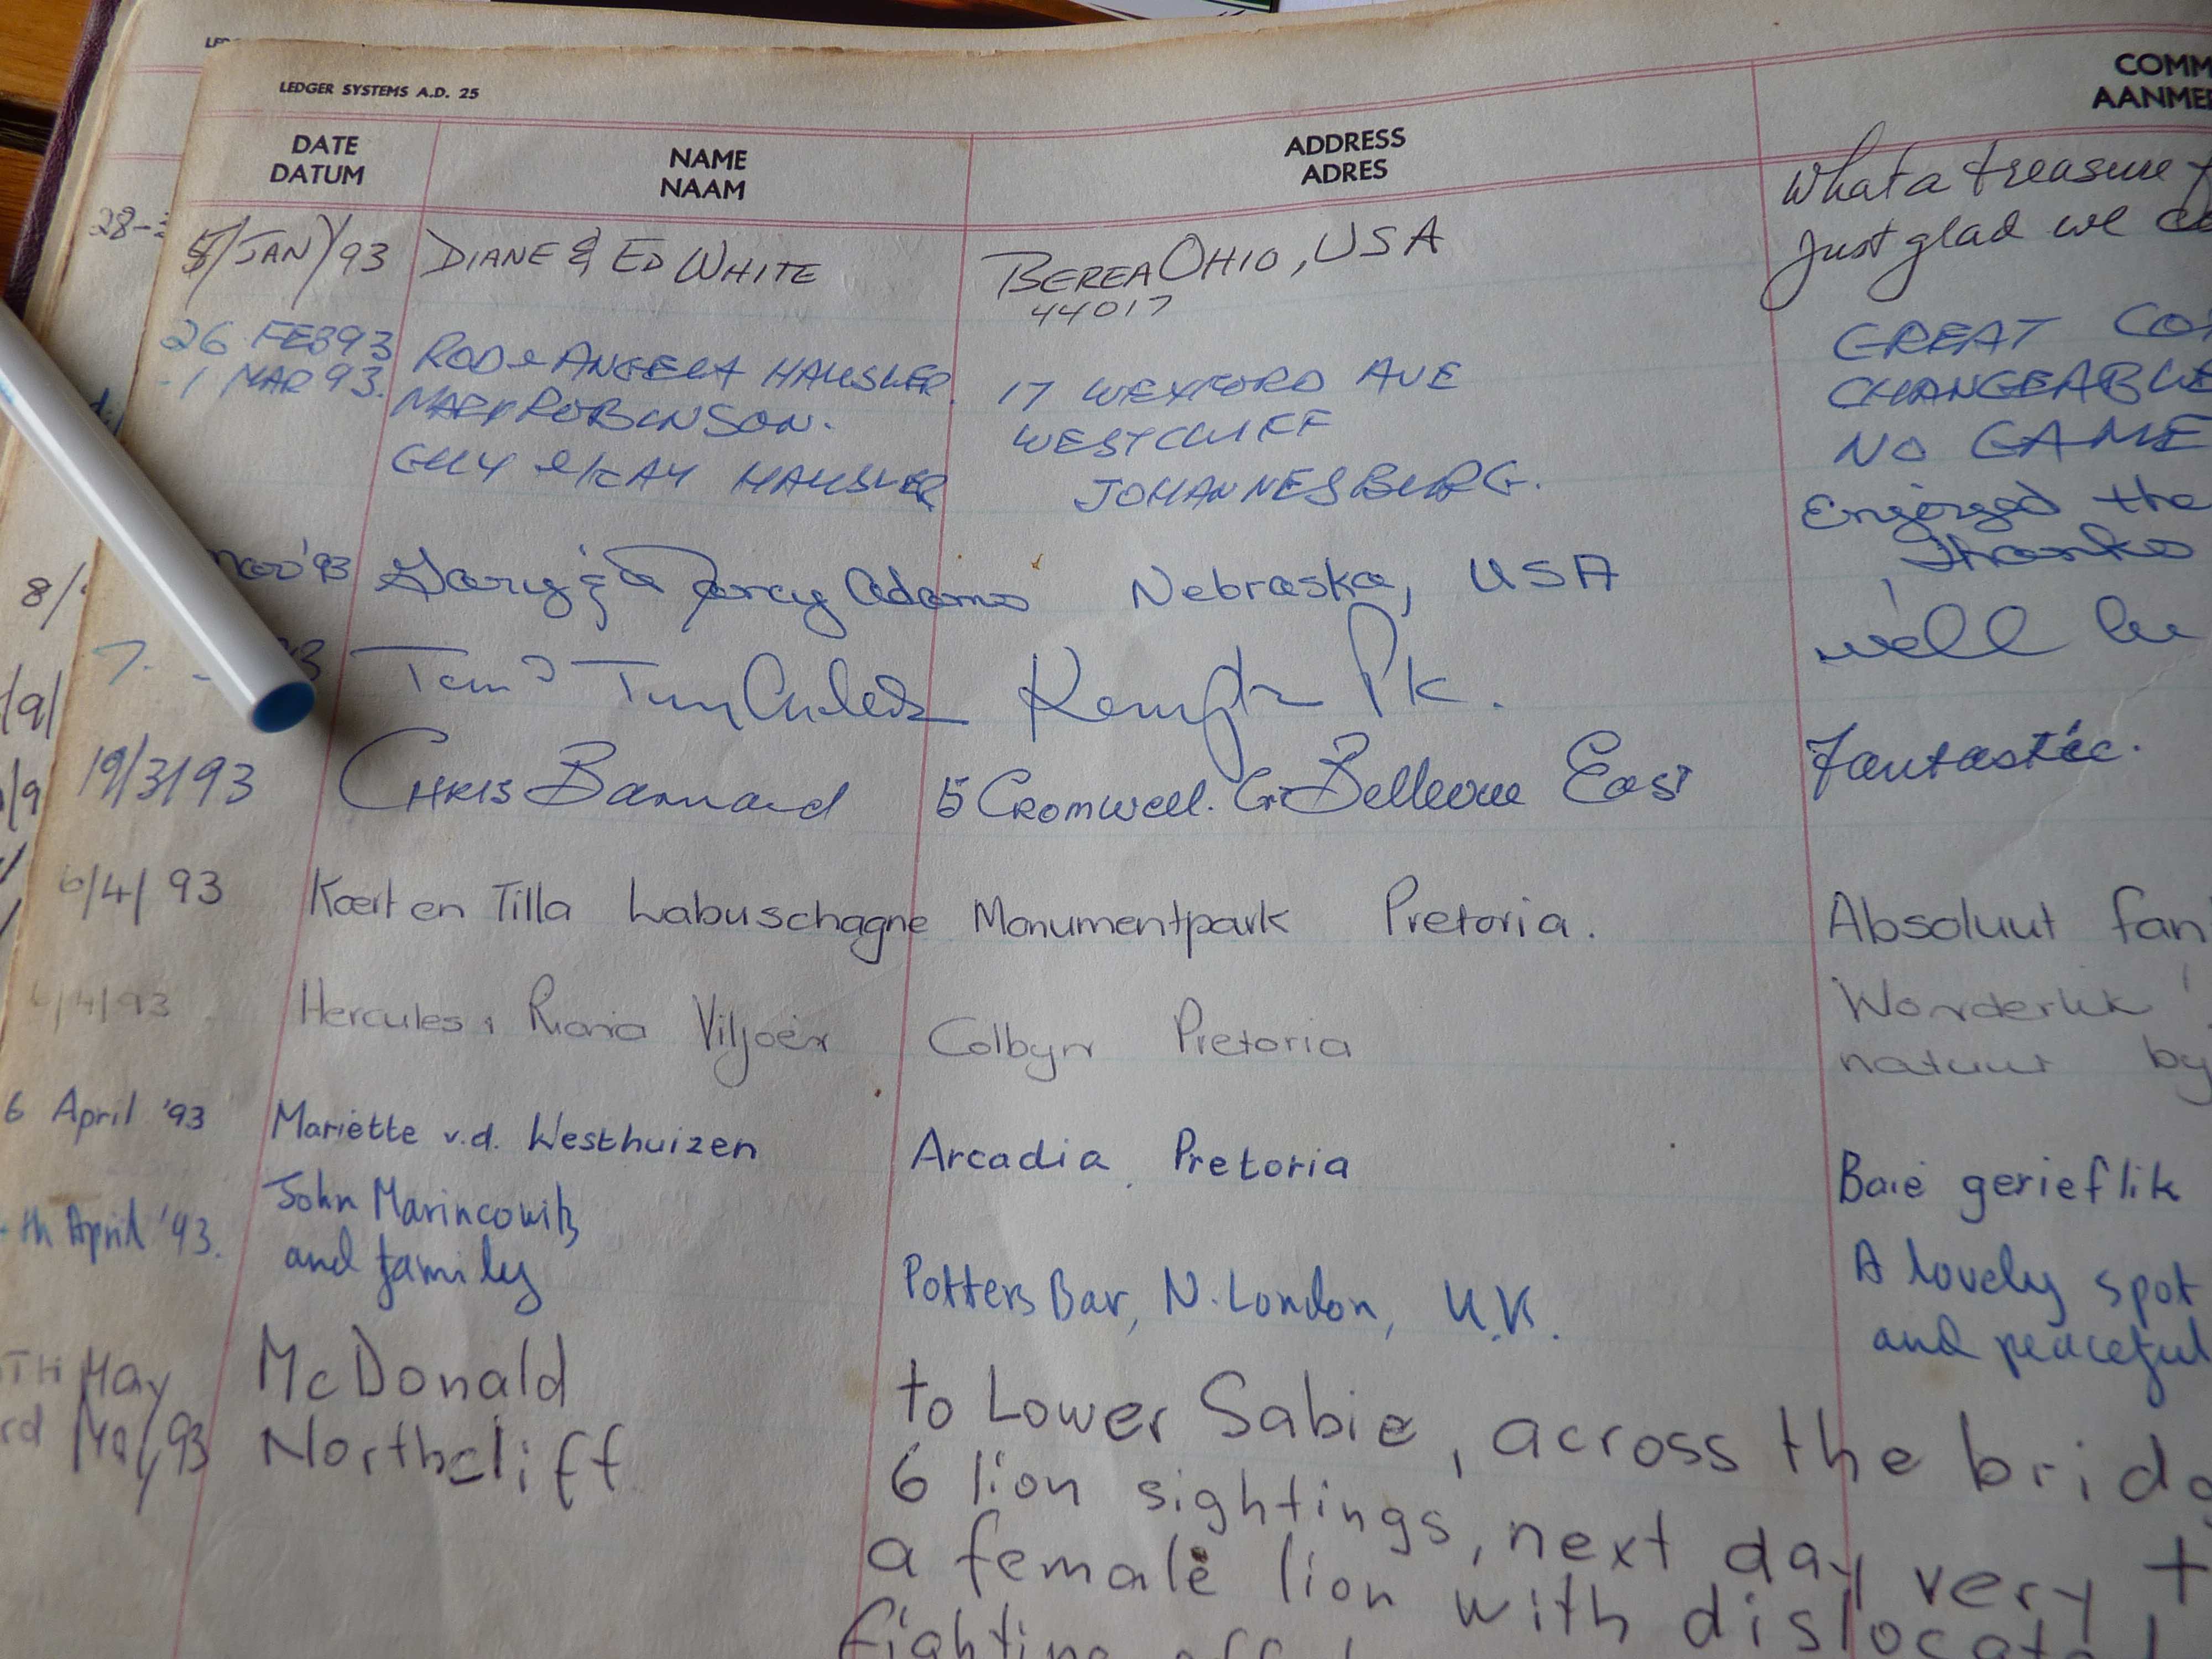 LEDGER SYSTEMS A.D. 25
DATE NAME ADDRESS COMM
DATUM NAAM ADRES AANME
What a treasure
5/JAN/93 DIANE & ED WHITE BEREA OHIO, USA Just glad we
44017
26 FEB 93 ROD & ANGELA HAUSLER. 17 WEXFORD AVE GREAT
-1 MAR 93. MARY ROBINSON. WESTCLIFF CHANGEABLE
GUY & KAY HAUSLER JOHANNESBURG. NO GAME
Enjoyed the
'93 Gary & Nancy Adams Nebraska, USA Thanks
7. 93 Tom Kempton Pk. well be
19/3/93 CHRIS Barnard 5 CROMWELL. Bellevue East Fantastic.
6/4/93 Koert en Tilla Labuschagne Monumentpark Pretoria. Absoluut fan
4/93 Hercules & Riana Viljoen Colbyn Pretoria Wonderlik
natuur by
6 April '93 Mariëtte v.d. Westhuizen Arcadia, Pretoria Baie gerieflik
th April '93. John Marincowitz
and family Potters Bar, N. London, U.K. A lovely spot
and peaceful
TH May McDonald to Lower Sabie, across the bridg
rd May 93 Northcliff 6 lion sightings, next day very
a female lion with dislocated
fighting off
28-
8/